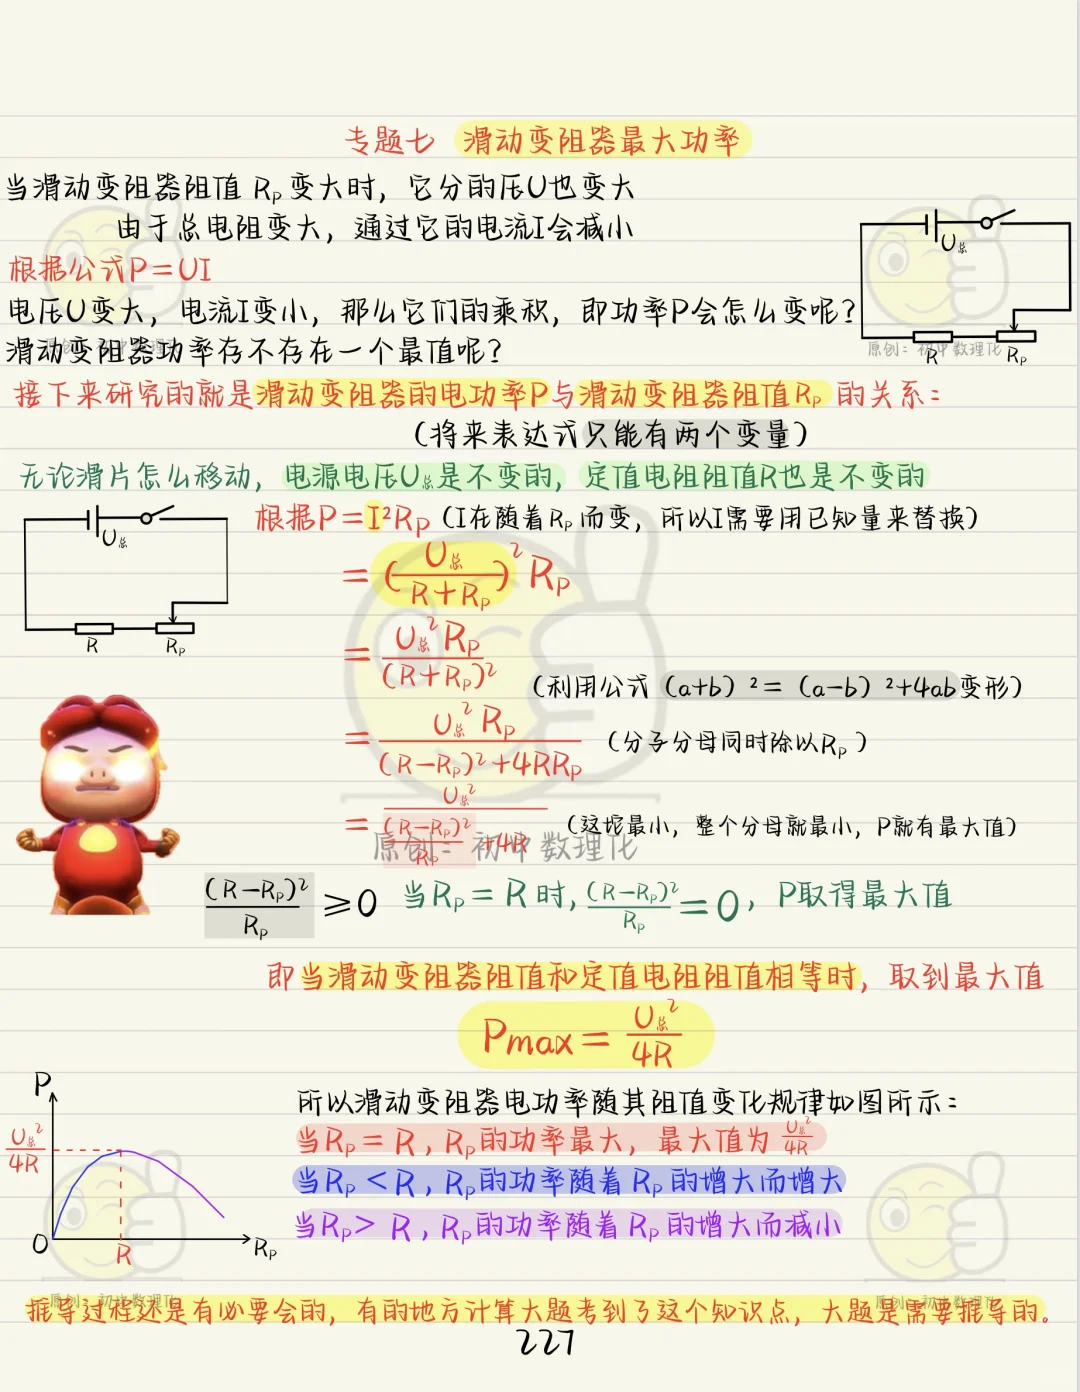 专题七 滑动变阻器最大功率
当滑动变阻器阻值 Rₚ 变大时，它分的压U也变大
由于总电阻变大，通过它的电流I会减小
根据公式P=UI
U总
电压U变大，电流I变小，那么它们的乘积，即功率P会怎么变呢？
滑动变阻器功率存不存在一个最值呢？
R Rₚ
原创：初中数理化
原创：初中数理化
接下来研究的就是滑动变阻器的电功率P与滑动变阻器阻值Rₚ 的关系：
（将来表达式只能有两个变量）
无论滑片怎么移动，电源电压U总是不变的，定值电阻阻值R也是不变的
U总
R Rₚ
根据P=I²Rₚ（I在随着Rₚ而变，所以I需要用已知量来替换）
=(U总/(R+Rₚ))²Rₚ
=U总²Rₚ/(R+Rₚ)²
（利用公式（a+b）²=（a-b）²+4ab变形）
=U总²Rₚ/((R-Rₚ)²+4RRₚ)（分子分母同时除以Rₚ）
=U总²/((R-Rₚ)²/Rₚ+4R)（这坨最小，整个分母就最小，P就有最大值）
原创：初中数理化
(R-Rₚ)²/Rₚ≥0 当Rₚ=R时，(R-Rₚ)²/Rₚ=0，P取得最大值
即当滑动变阻器阻值和定值电阻阻值相等时，取到最大值
Pmax=U总²/4R
P
U总²/4R
O
R
Rₚ
所以滑动变阻器电功率随其阻值变化规律如图所示：
当Rₚ=R，Rₚ的功率最大，最大值为U总²/4R
当Rₚ<R，Rₚ的功率随着Rₚ的增大而增大
当Rₚ>R，Rₚ的功率随着Rₚ的增大而减小
原创：初中数理化
原创：初中数理化
推导过程还是有必要会的，有的地方计算大题考到了这个知识点，大题是需要推导的。
227